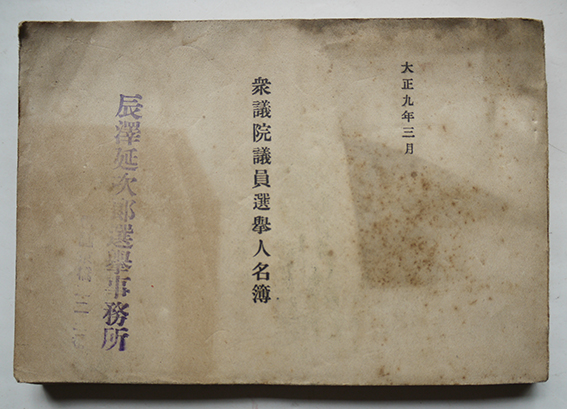 大正九年三月
衆議院議員選擧人名簿
辰澤延次郎選擧事務所